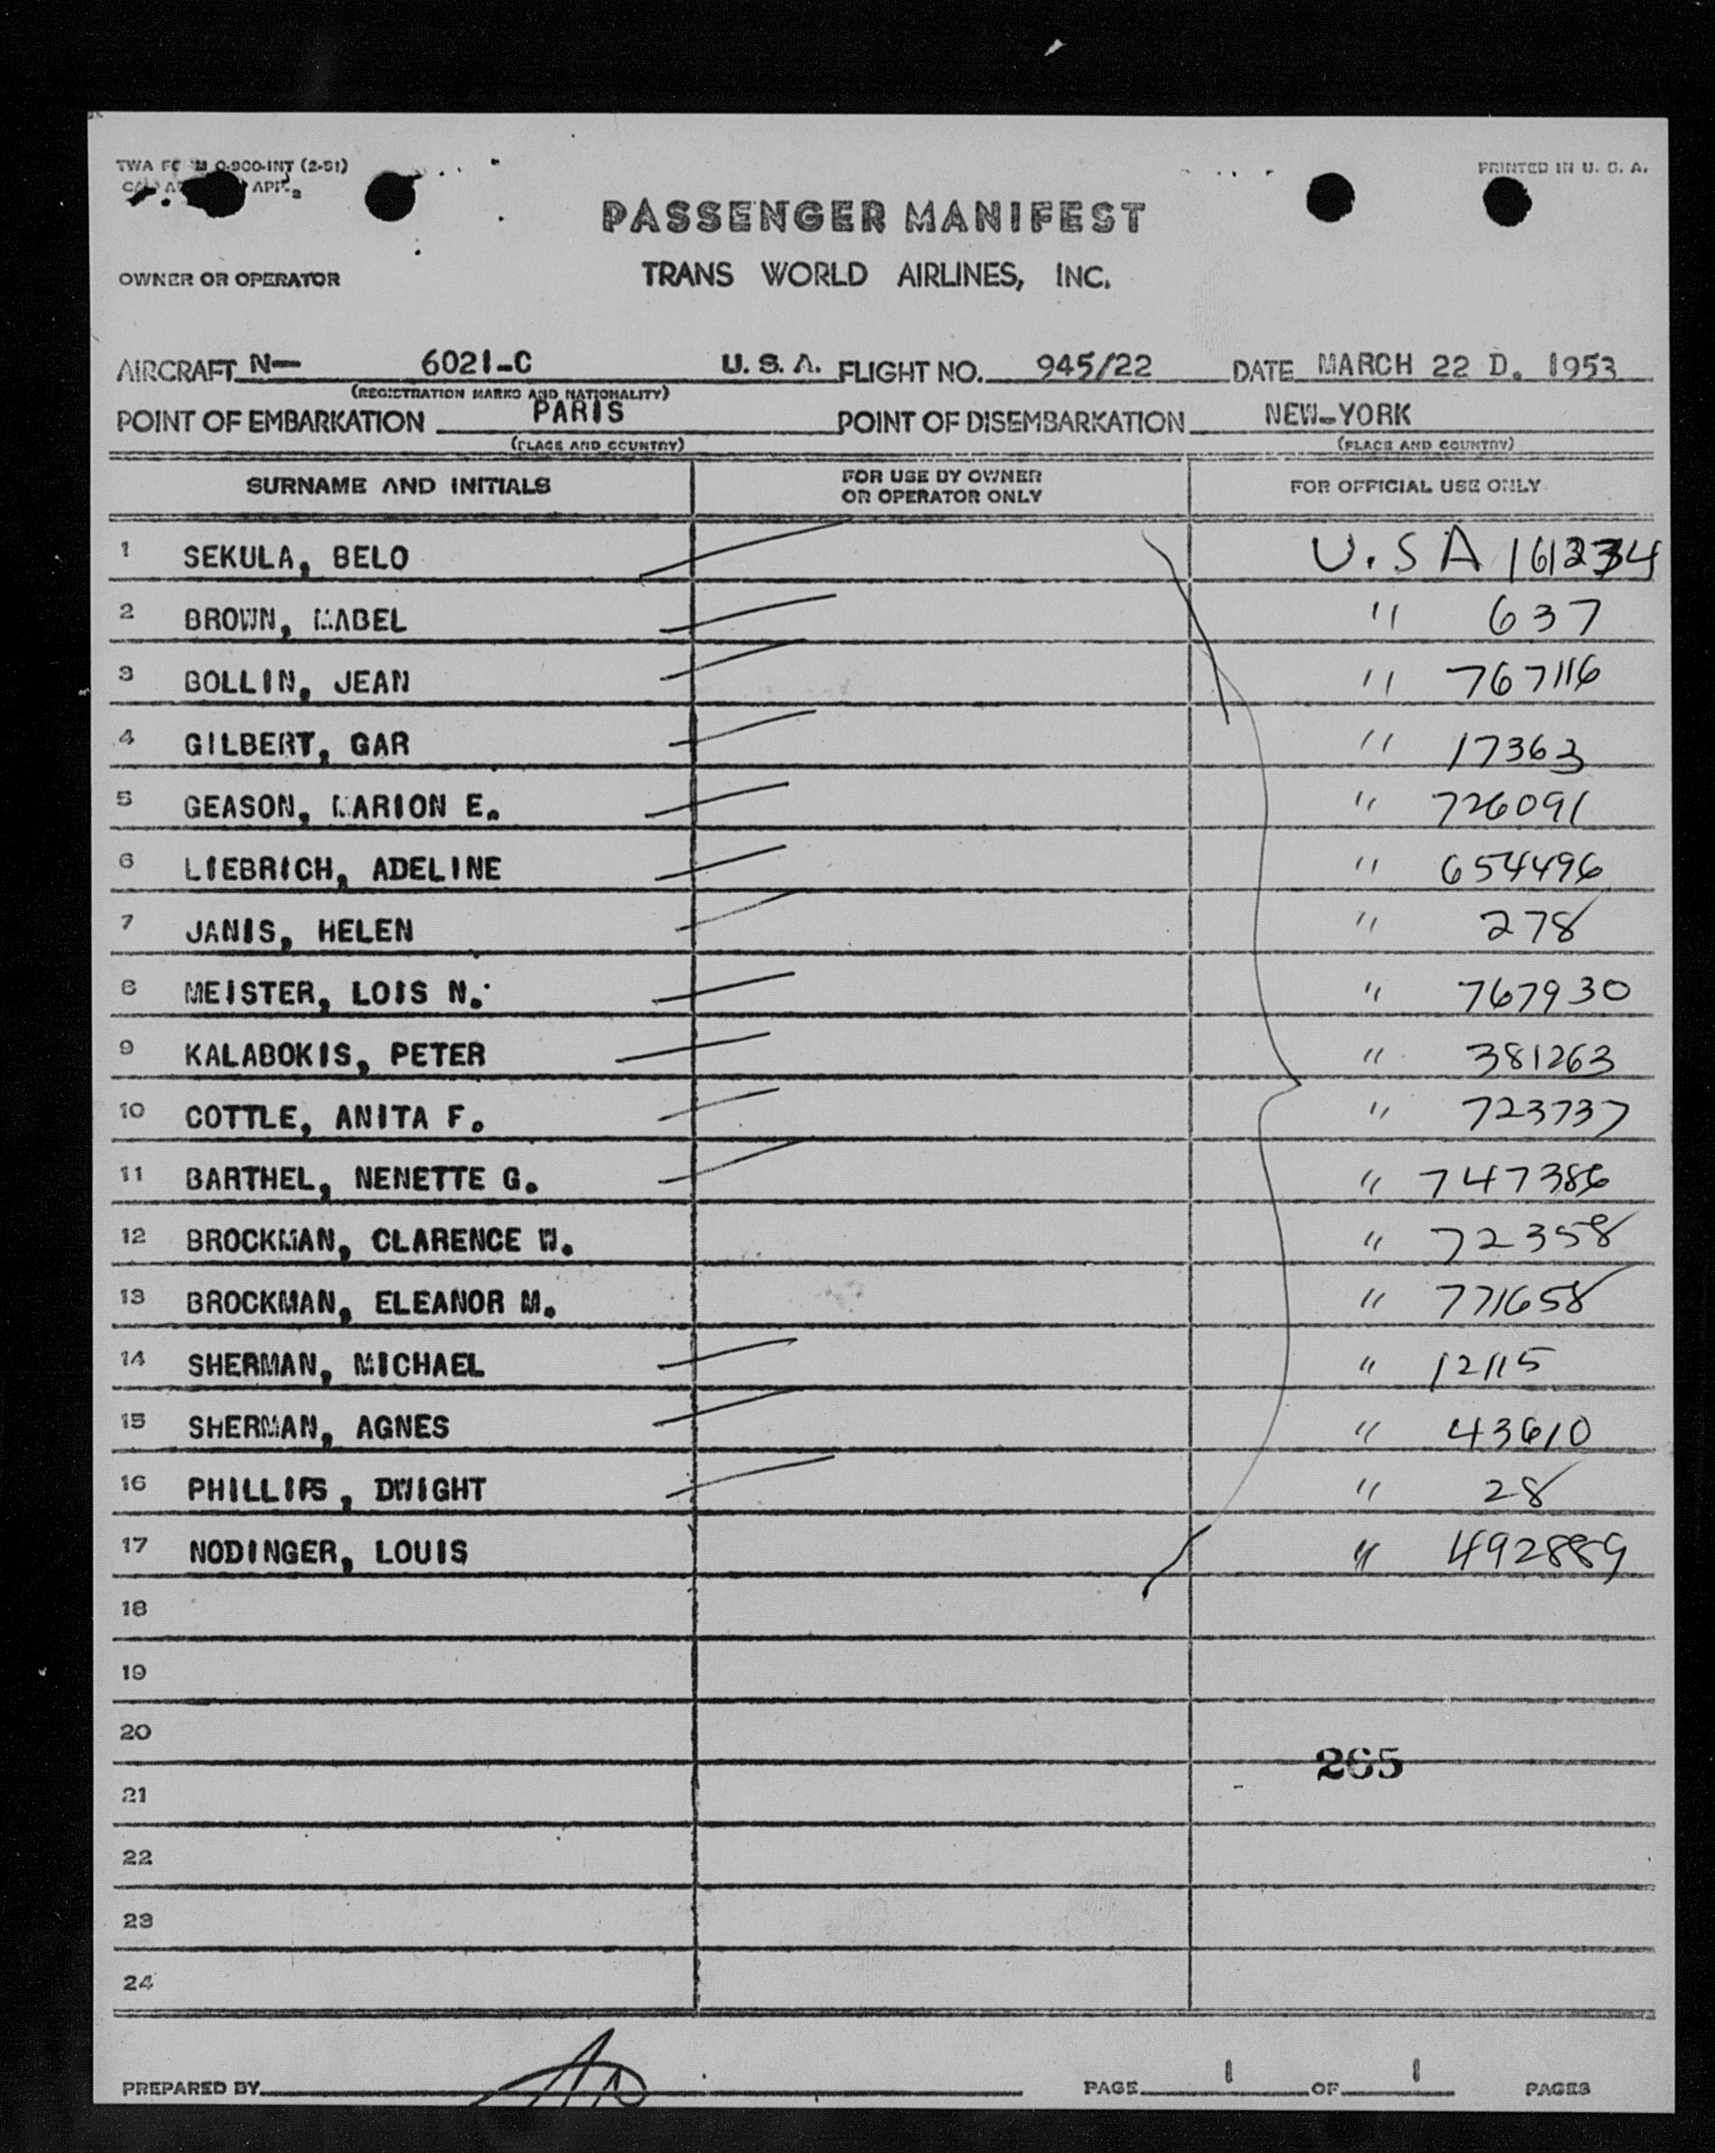 TWA FORM O-900-INT (2-51)
PRINTED IN U. S. A.
PASSENGER MANIFEST
OWNER OR OPERATOR
TRANS WORLD AIRLINES, INC.
AIRCRAFT N— 6021-C U. S. A. FLIGHT NO. 945/22 DATE MARCH 22 D. 1953
(REGISTRATION MARKS AND NATIONALITY)
POINT OF EMBARKATION PARIS POINT OF DISEMBARKATION NEW-YORK
(PLACE AND COUNTRY) (PLACE AND COUNTRY)
SURNAME AND INITIALS FOR USE BY OWNER OR OPERATOR ONLY FOR OFFICIAL USE ONLY
1 SEKULA, BELO U.S A 161234
2 BROWN, MABEL " 637
3 BOLLIN, JEAN " 767116
4 GILBERT, GAR " 17363
5 GEASON, MARION E. " 726091
6 LIEBRICH, ADELINE " 654496
7 JANIS, HELEN " 278
8 MEISTER, LOIS N. " 767930
9 KALABOKIS, PETER " 381263
10 COTTLE, ANITA F. " 723737
11 BARTHEL, NENETTE G. " 747386
12 BROCKMAN, CLARENCE W. " 72358
13 BROCKMAN, ELEANOR M. " 771658
14 SHERMAN, MICHAEL " 12115
15 SHERMAN, AGNES " 43610
16 PHILLIPS, DWIGHT " 28
17 NODINGER, LOUIS " 492889
18
19
20
265
21
22
23
24
PREPARED BY PAGE 1 OF 1 PAGES